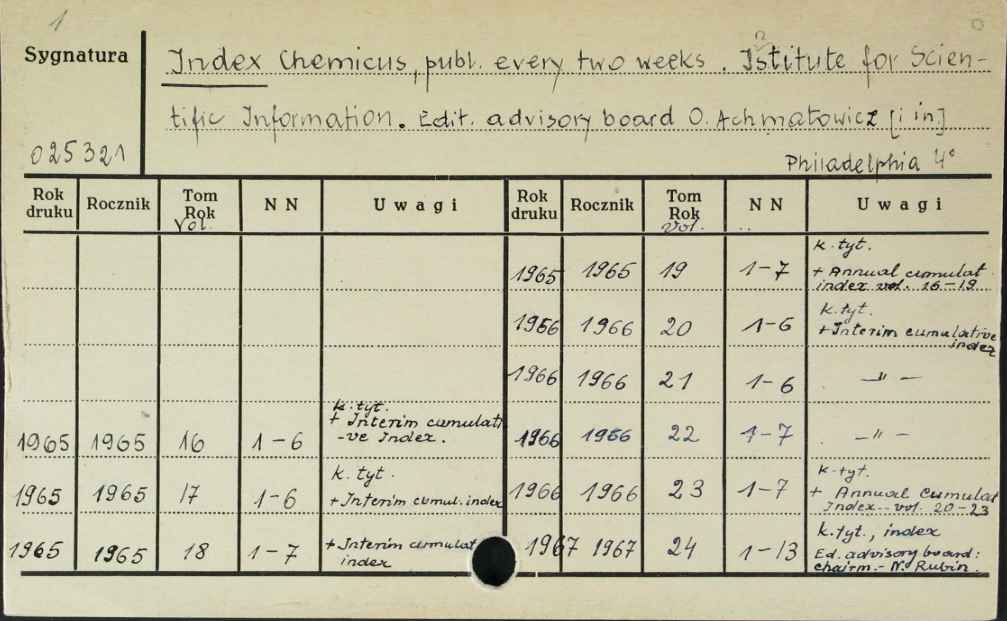 1
Sygnatura
Index Chemicus, publ. every two weeks. Istitute for Scien-
n
tific Information. Edit. advisory board O. Achmatowicz [i in.]
025321
Philadelphia 4°
Rok druku Rocznik Tom Rok Vol. NN Uwagi
1965 1965 16 1-6 k. tyt. + Interim cumulati-ve Index.
1965 1965 17 1-6 k. tyt. + Interim cumul. index
1965 1965 18 1-7 + Interim cumulat index
Rok druku Rocznik Tom Rok Vol. NN Uwagi
1965 1965 19 1-7 k. tyt. + Annual cumulat index vol. 16-19
1966 1966 20 1-6 k. tyt. + Interim cumulative index
1966 1966 21 1-6 -"-
1966 1966 22 1-7 -"-
1966 1966 23 1-7 k. tyt. + Annual Cumulat Index vol. 20-23
1967 1967 24 1-13 k. tyt., index Ed. advisory board: chairm.- N. Rubin.